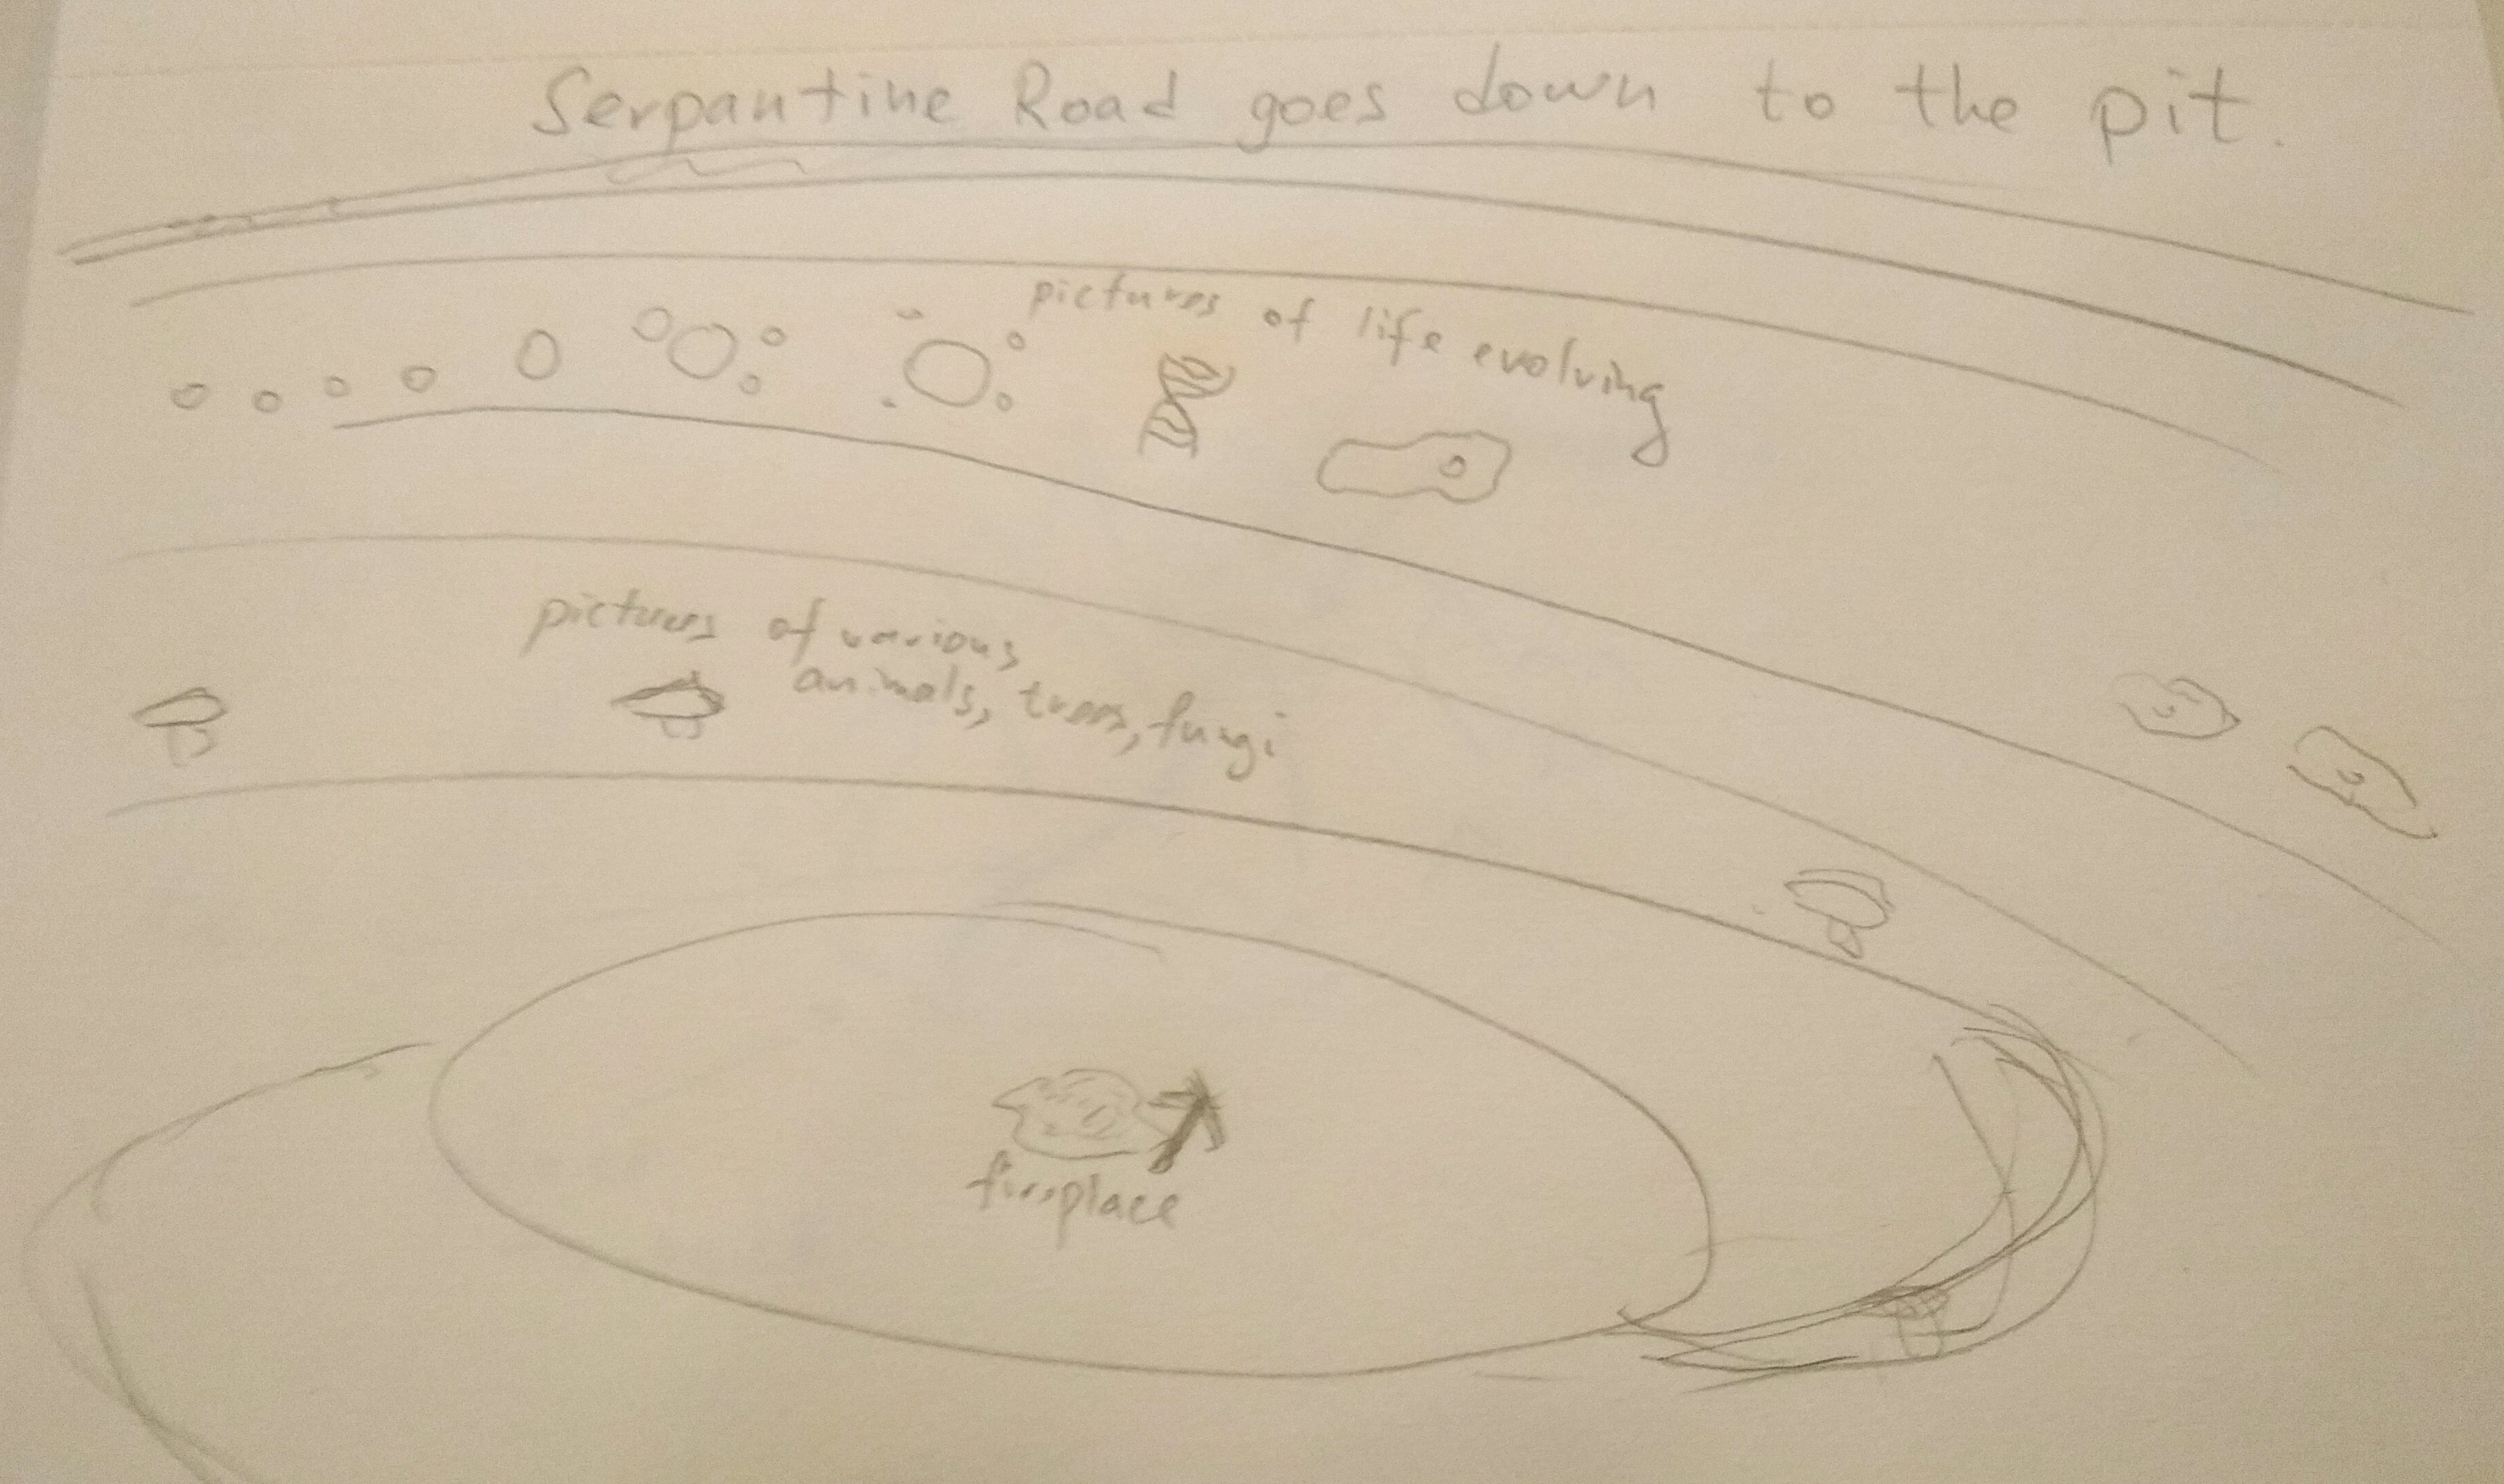 Serpantine Road goes down to the pit.
pictures of life evolving
pictures of various
animals, trees, fungi
fireplace